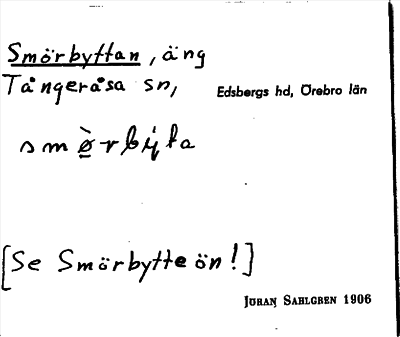 Smörbyttan, äng
Tångeråsa sn,
Edsbergs hd, Örebro län
[Se Smörbytteön!]
JÖRAN SAHLGREN 1906